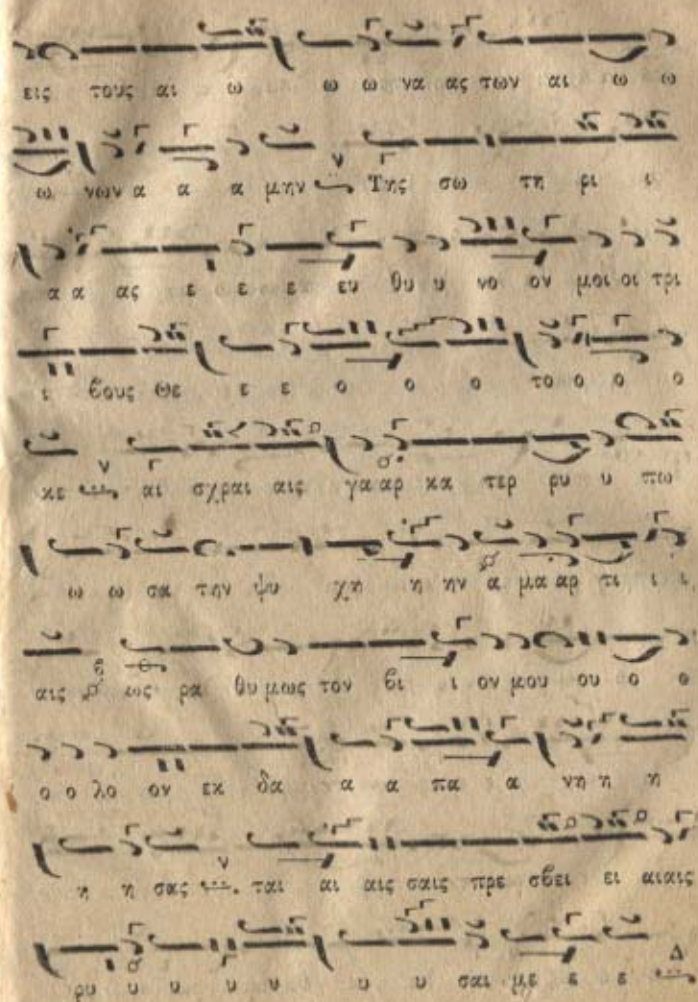 εις τους αι ω ω ω να ας των αι ω ω
ω νων α α α μην ν Της σω τη ρι ι
α α ας ε ε ε ευ θυ υ νο ον μοι οι τρι
ι βους Θε ε ε ο ο ο το ο ο ο
κε ν αι σχραι αις γα αρ κα τερ ρυ υ πω
ω ω σα την ψυ χη η ην α μα αρ τι ι ι
αις ως ρα θυ μως τον βι ι ον μου ου ο ο
ο ο λο ον εκ δα α α πα α νη η η
η η σας ν ται αι αις σαις πρε σβει ει αιαις
ρυ υ υ υ υ υ υ υ σαι με ε ε Δ